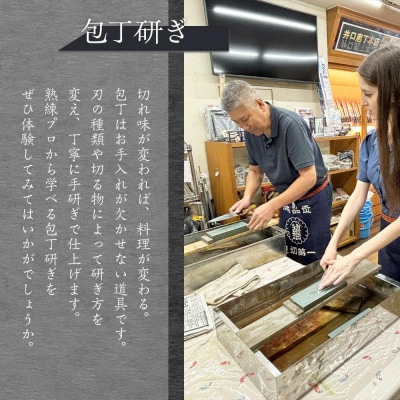 包丁研ぎ
切れ味が変われば、料理が変わる。
包丁はお手入れが欠かせない道具です。
刃の種類や切る物によって研ぎ方を
変え、丁寧に手研ぎで仕上げます。
熟練プロから学べる包丁研ぎを
ぜひ体験してみてはいかがでしょうか。